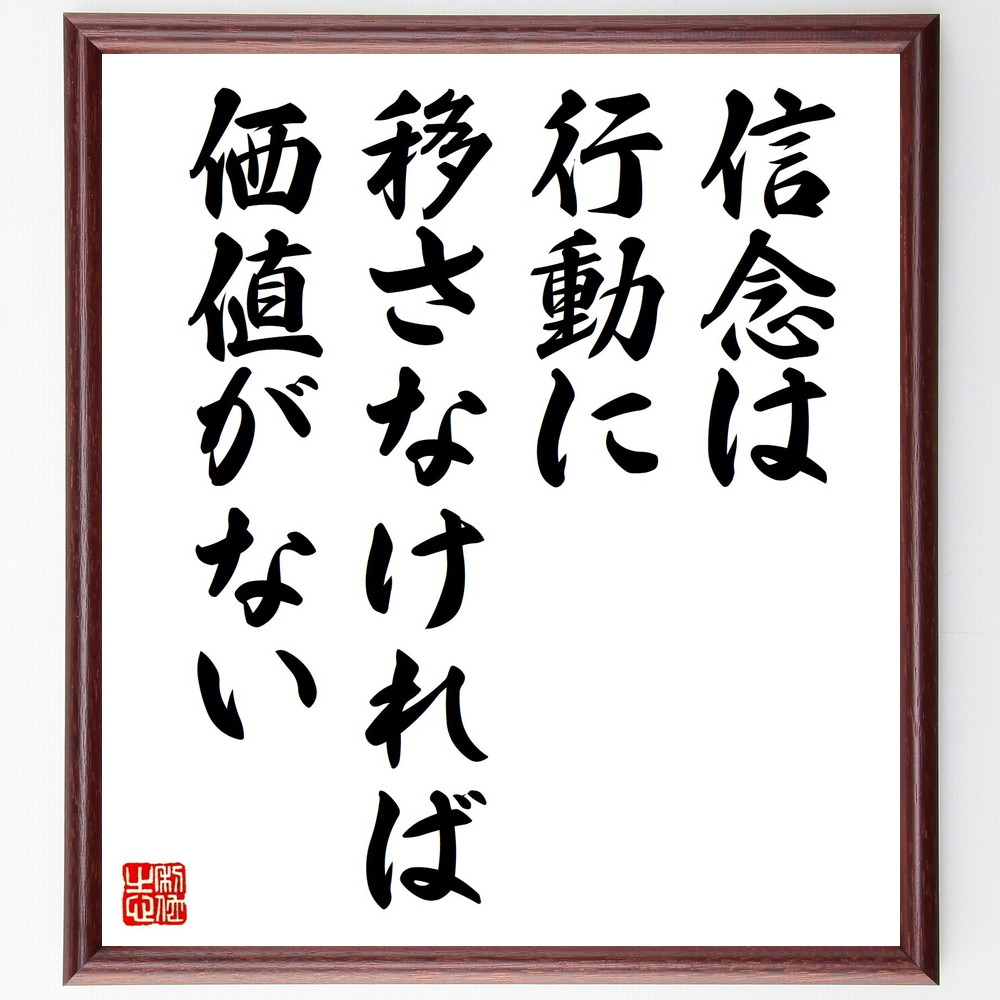 信念は
行動に
移さなければ
価値がない